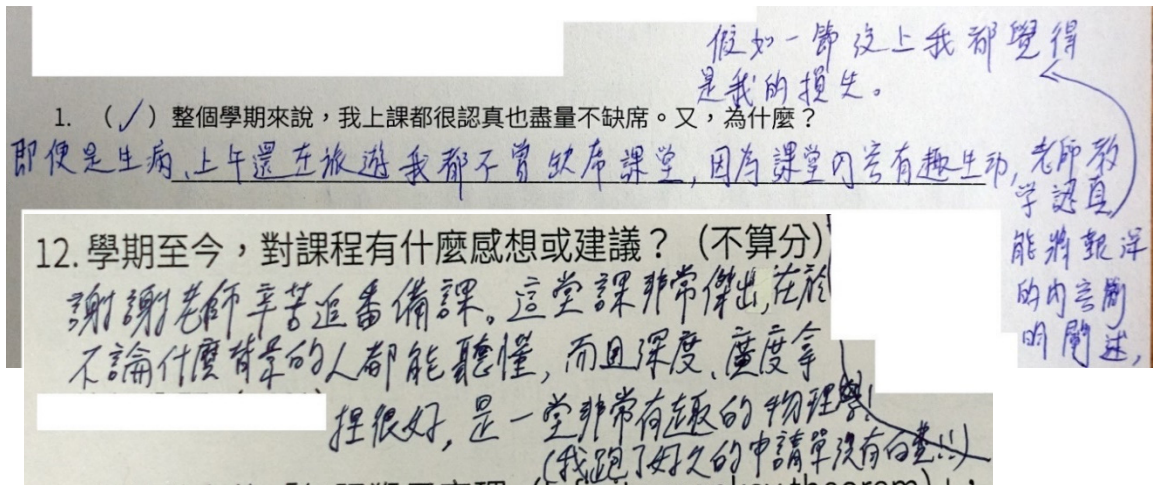 1. （✓）整個學期來說，我上課都很認真也盡量不缺席。又，為什麼？
即便是生病、上午還在旅遊我都不曾缺席課堂，因為課堂內容有趣生動，老師教
學認真
能將艱深
的內容簡
明闡述，
假如一節沒上我都覺得
是我的損失。
12. 學期至今，對課程有什麼感想或建議？（不算分）
謝謝老師辛苦追番備課。這堂課非常傑出，在於
不論什麼背景的人都能聽懂，而且深度、廣度拿
捏很好，是一堂非常有趣的物理學！
(我跑了好久的申請單沒有白費!!!)
(monkey theorem)」，